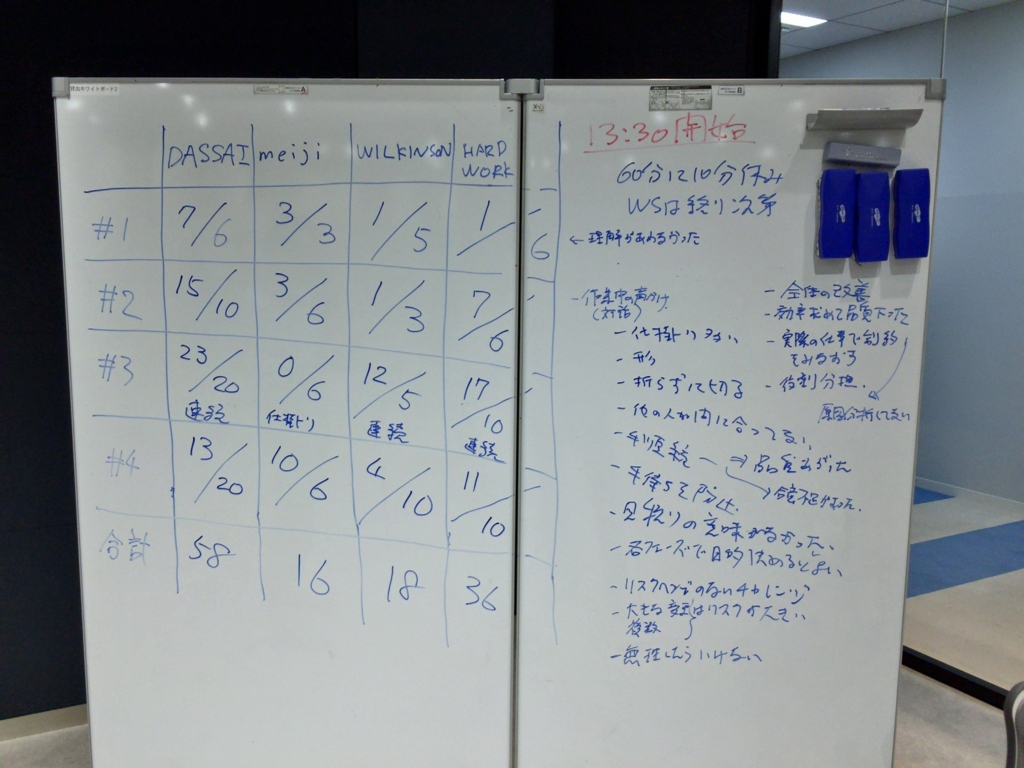 貸出ホワイトボード2
DASSAI meiji WILKINSON HARD WORK
#1 7/6 3/3 1/5 1/6
#2 15/10 3/6 1/3 7/6
#3 23/20 0/6 12/5 17/10
連続 仕掛り 連続 連続
#4 13/20 10/6 4/10 11/10
合計 58 16 18 36
13:30開始
60分に10分休み
WSは終り次第
← 理解があわるかった
- 作業中の声かけ
(対話)
- 仕掛り多い
- 形
- 折らずに切る
- 他の人が間に合ってない
- 手順
→ 品質
- 手待ちを防止
- 見積りの意味がなかった
- 各フェーズで目的決めるとよい
- リスクヘッジのないチャレンジ
- 大きな変更はリスクが大きい
複数
- 無理したらいけない
- 全体の改善
- 効率求めて品質下った
- 実際の仕事で制約
をみるかも
- 役割分担
原因分析してない